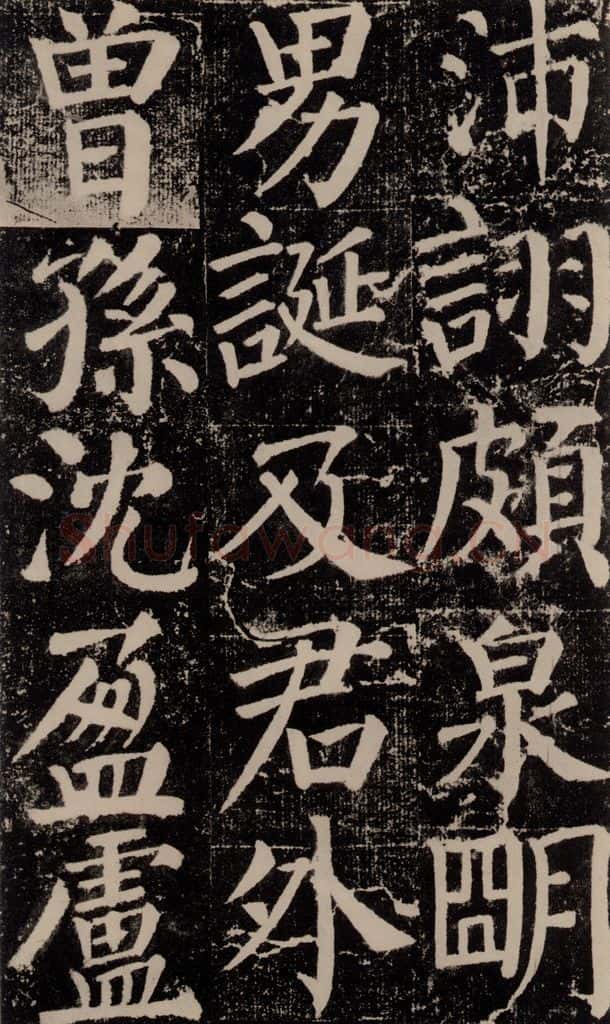 沛詡頗泉明
男誕及君外
曽孫沈盈盧
Shufawang.CN